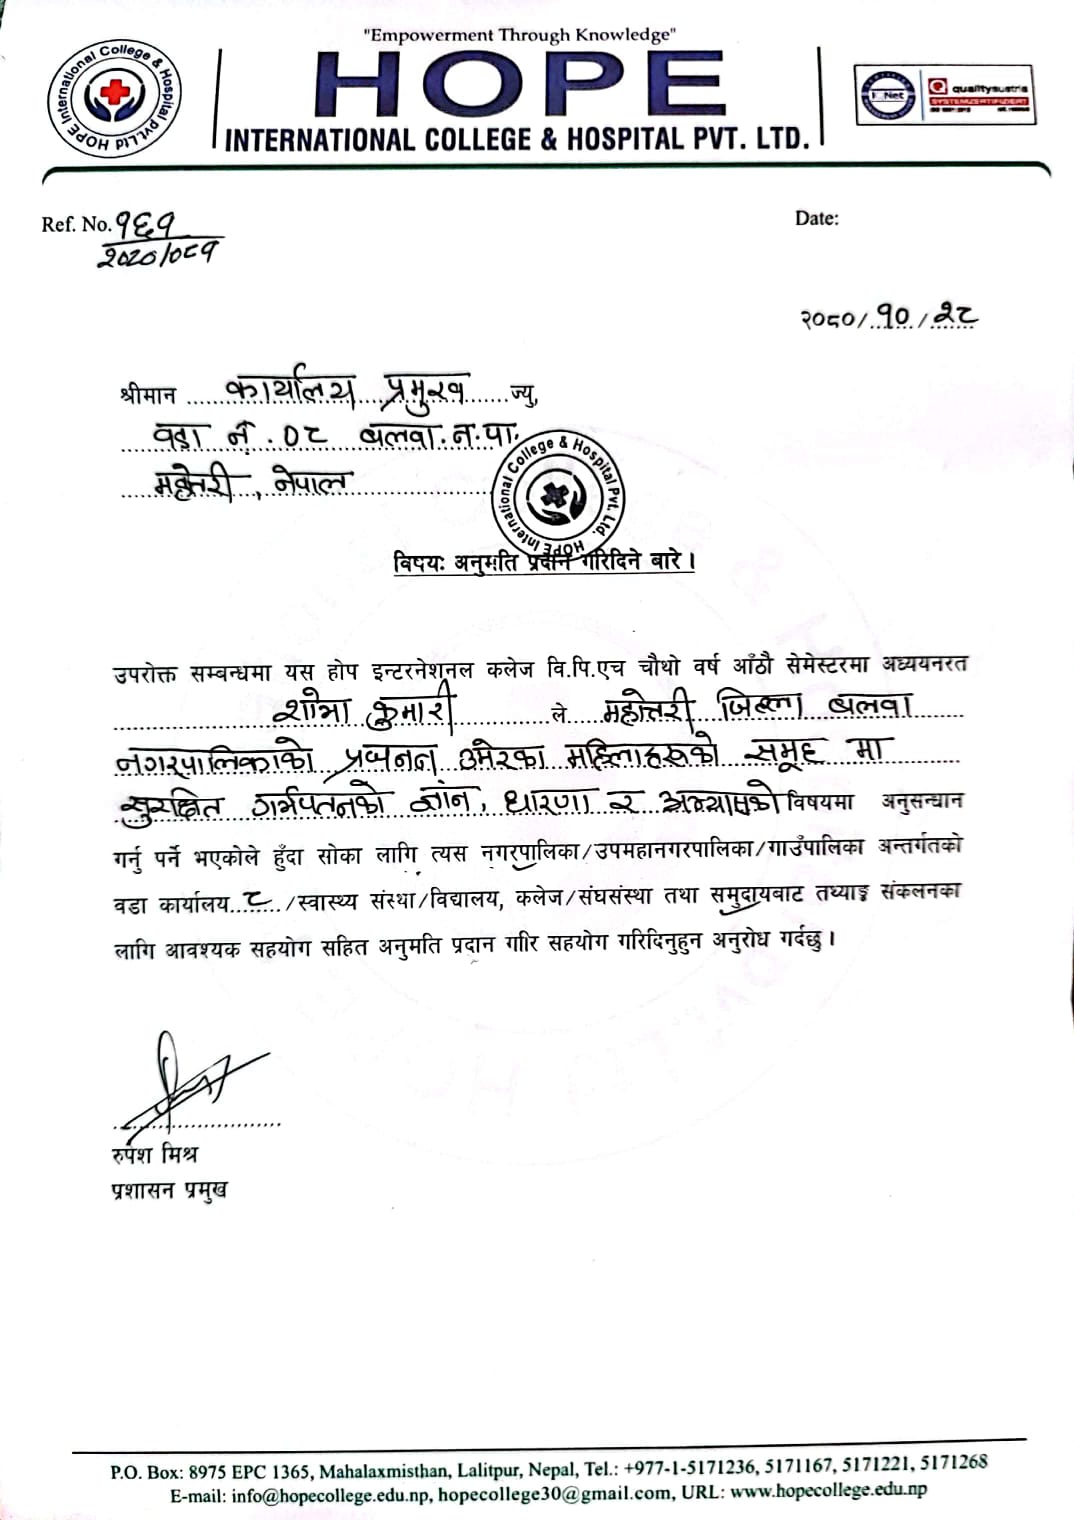 "Empowerment Through Knowledge"
HOPE
INTERNATIONAL COLLEGE & HOSPITAL PVT. LTD.
HOPE International College & Hospital Pvt.Ltd
IQNet
qualityaustria
SYSTEMZERTIFIZIERT
Ref. No. १६१
२०८०/०८१
Date:
२०८०/१०/२८
श्रीमान कार्यालय प्रमुख ज्यु,
वडा नं. ०८ बलवा.न.पा.
महोत्तरी, नेपाल
HOPE International College & Hospital Pvt. Ltd.
विषयः अनुमति प्रदान गरिदिने बारे ।
उपरोक्त सम्बन्धमा यस होप इन्टरनेशनल कलेज वि.पि.एच चौथो वर्ष आँठौ सेमेस्टरमा अध्ययनरत
कुमारी ले महोत्तरी जिल्ला बलवा
नगरपालिकाको प्रजनन उमेरका महिलाहरूको समूह मा
सुरक्षित गर्भपतनको ज्ञान, धारणा र अभ्यासको विषयमा अनुसन्धान
गर्नु पर्ने भएकोले हुँदा सोका लागि त्यस नगरपालिका/उपमहानगरपालिका/गाउँपालिका अन्तर्गतको
वडा कार्यालय ८ /स्वास्थ्य संस्था/विद्यालय, कलेज/संघसंस्था तथा समुदायबाट तथ्याङ्क संकलनका
लागि आवश्यक सहयोग सहित अनुमति प्रदान गरि सहयोग गरिदिनुहुन अनुरोध गर्दछु ।
रुपेश मिश्र
प्रशासन प्रमुख
P.O. Box: 8975 EPC 1365, Mahalaxmisthan, Lalitpur, Nepal, Tel.: +977-1-5171236, 5171167, 5171221, 5171268
E-mail: info@hopecollege.edu.np, hopecollege30@gmail.com, URL: www.hopecollege.edu.np